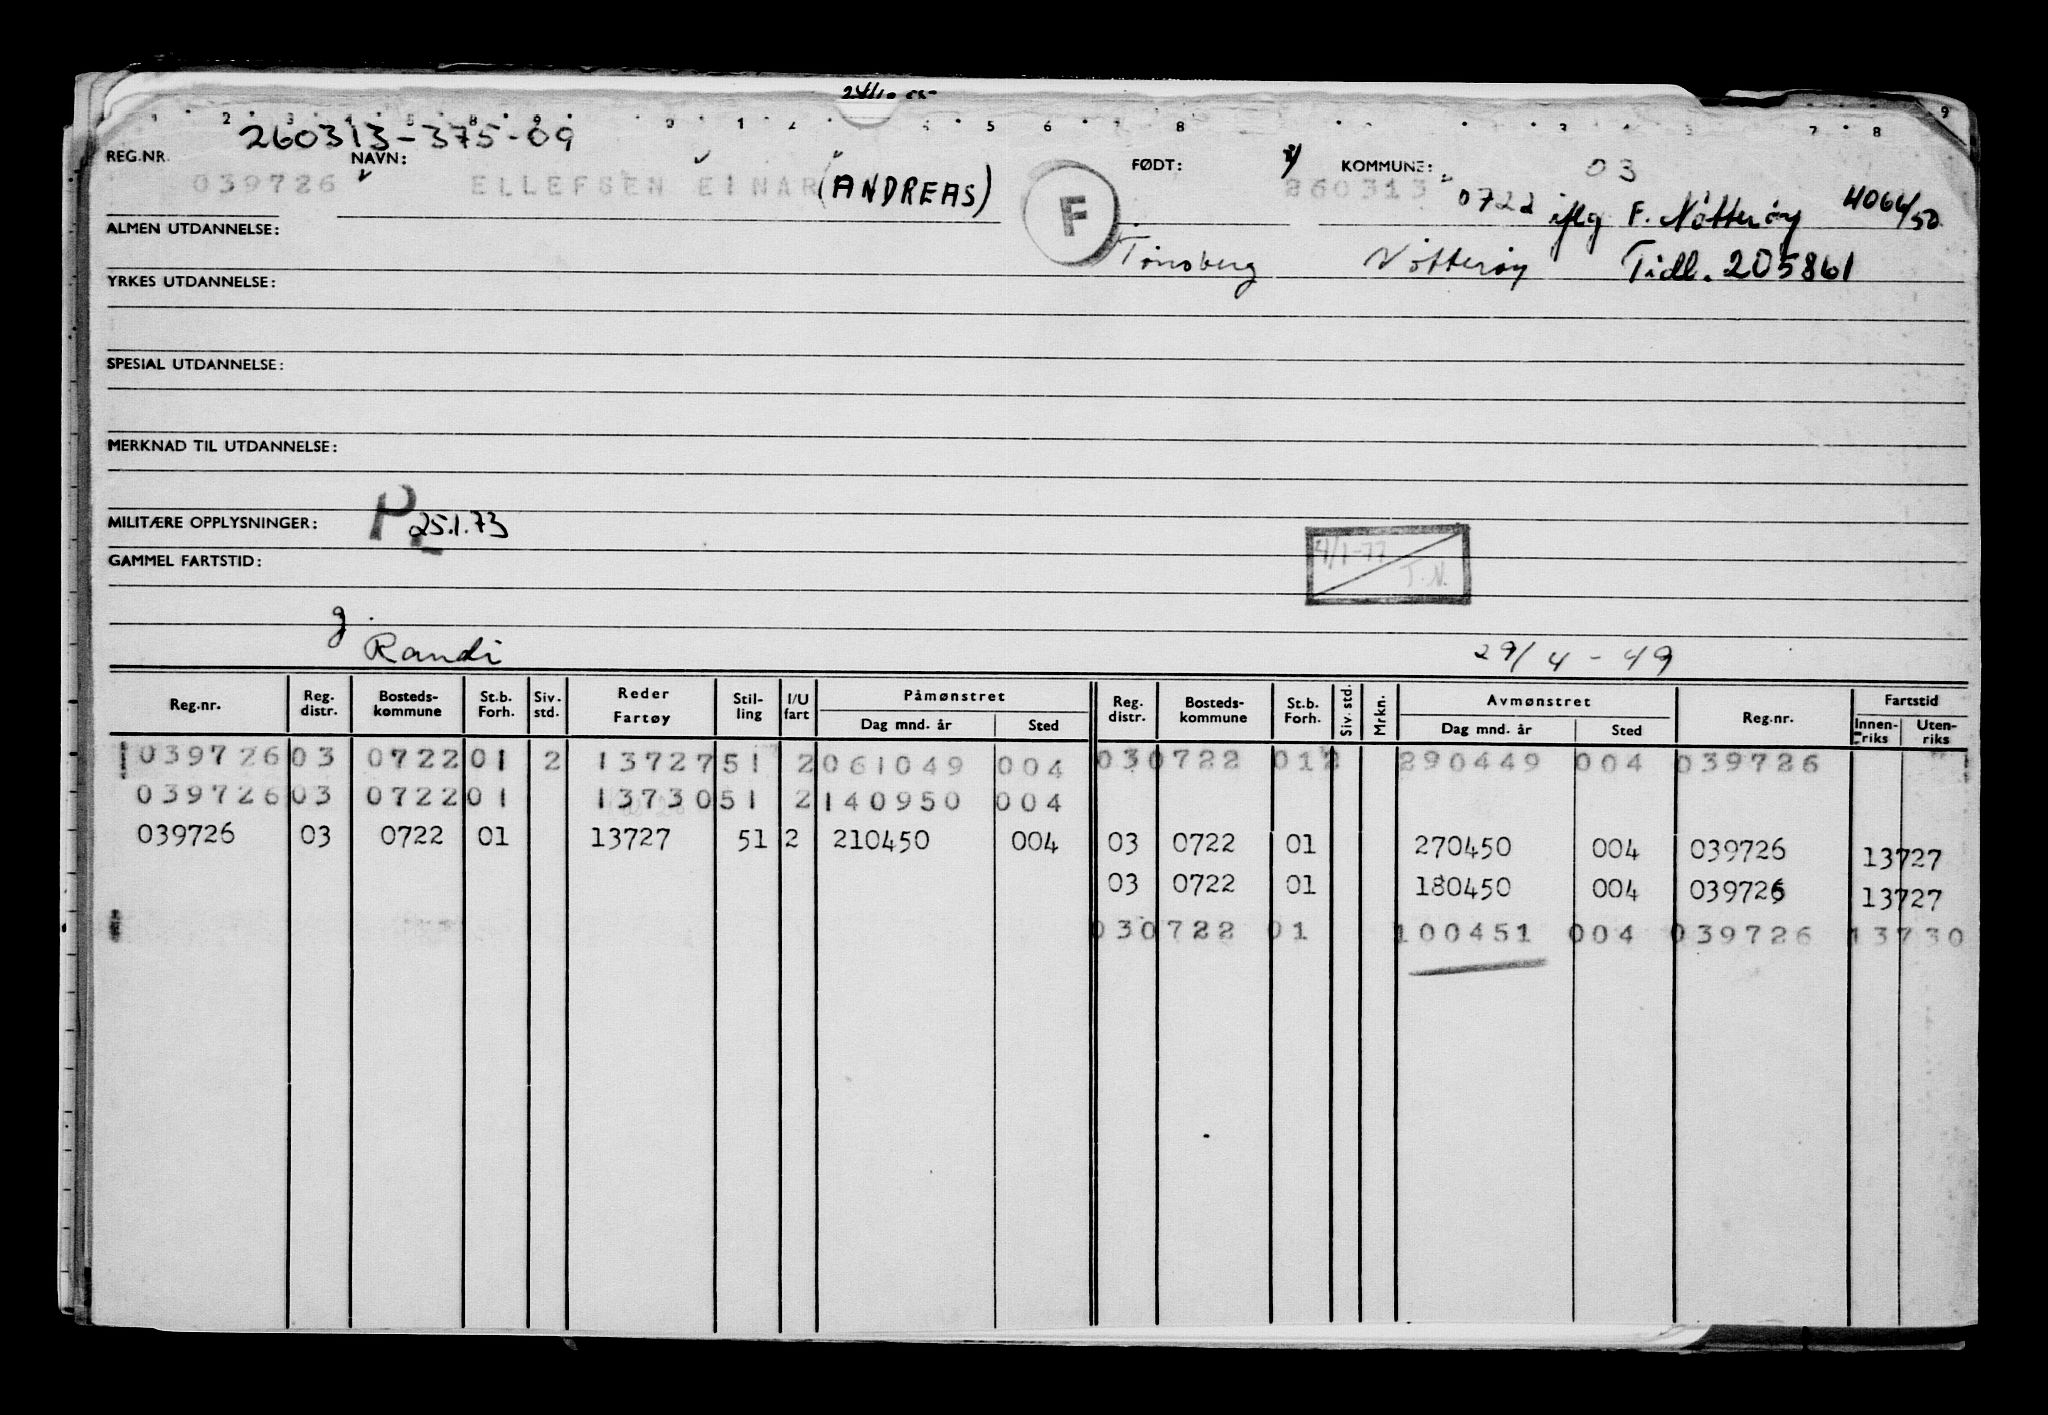 260313-375-09
REG.NR. NAVN: FØDT: KOMMUNE: 03
039726 ELLEFSEN EINAR (ANDREAS) F 260313 0722 iflg F. Nøtterøy 4066/50
ALMEN UTDANNELSE: Tønsberg Nøtterøy Tidl. 205861
YRKES UTDANNELSE:
SPESIAL UTDANNELSE:
MERKNAD TIL UTDANNELSE:
MILITÆRE OPPLYSNINGER: P 25.1.73
GAMMEL FARTSTID: 4/1-77 T.N.
g. Randi 29/4-49
Reg.nr. Reg. distr. Bosteds-kommune St.b. Forh. Siv. std. Reder Fartøy Stil-ling I/U fart Påmønstret Dag mnd. år Sted Reg. distr. Bosteds-kommune St.b. Forh. Siv. std. Mrkn. Avmønstret Dag mnd. år Sted Reg.nr. Fartstid Innen-riks Uten-riks
039726 03 0722 01 2 13727 51 2 061049 004 03 0722 01 2 290449 004 039726
039726 03 0722 01 13730 51 2 140950 004
039726 03 0722 01 13727 51 2 210450 004 03 0722 01 270450 004 039726 13727
03 0722 01 180450 004 039726 13727
03 0722 01 100451 004 039726 13730